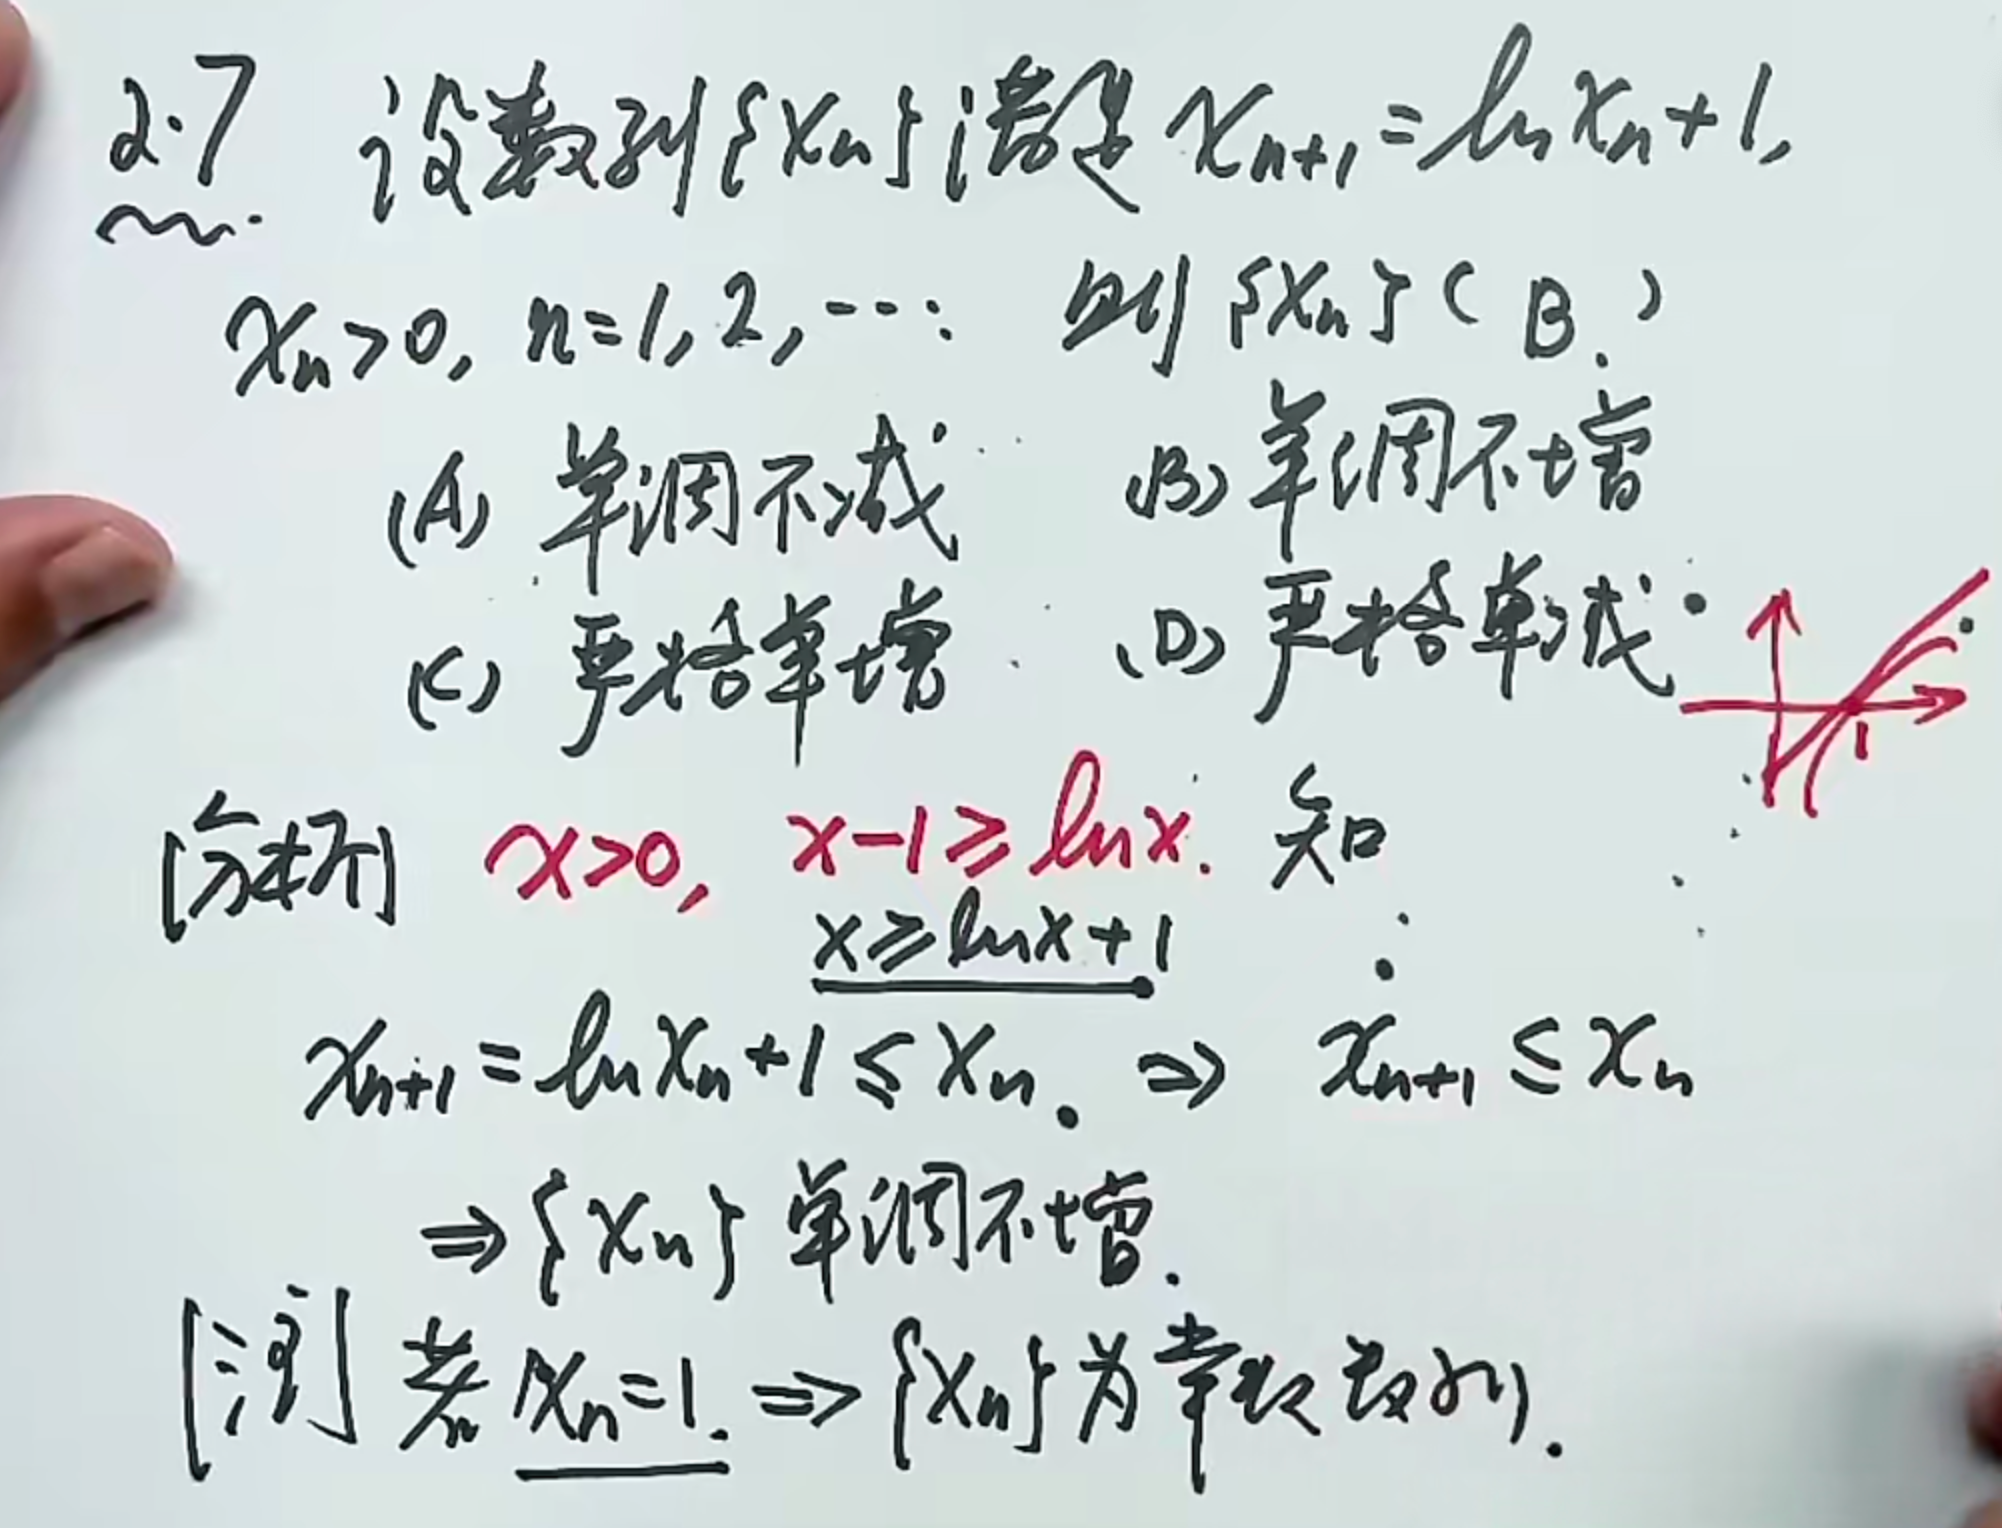 2.7 设数列{xn}满足 xn+1=ln xn+1,
xn>0, n=1,2,…. 则{xn}( B. )
(A) 单调不减 (B) 单调不增
(C) 严格单增 (D) 严格单减
1
[分析] x>0, x-1≥lnx. 知
x≥lnx+1
xn+1=lnxn+1≤xn. ⇒ xn+1≤xn
⇒{xn}单调不增.
[注] 若 xn=1. ⇒{xn}为常数数列.